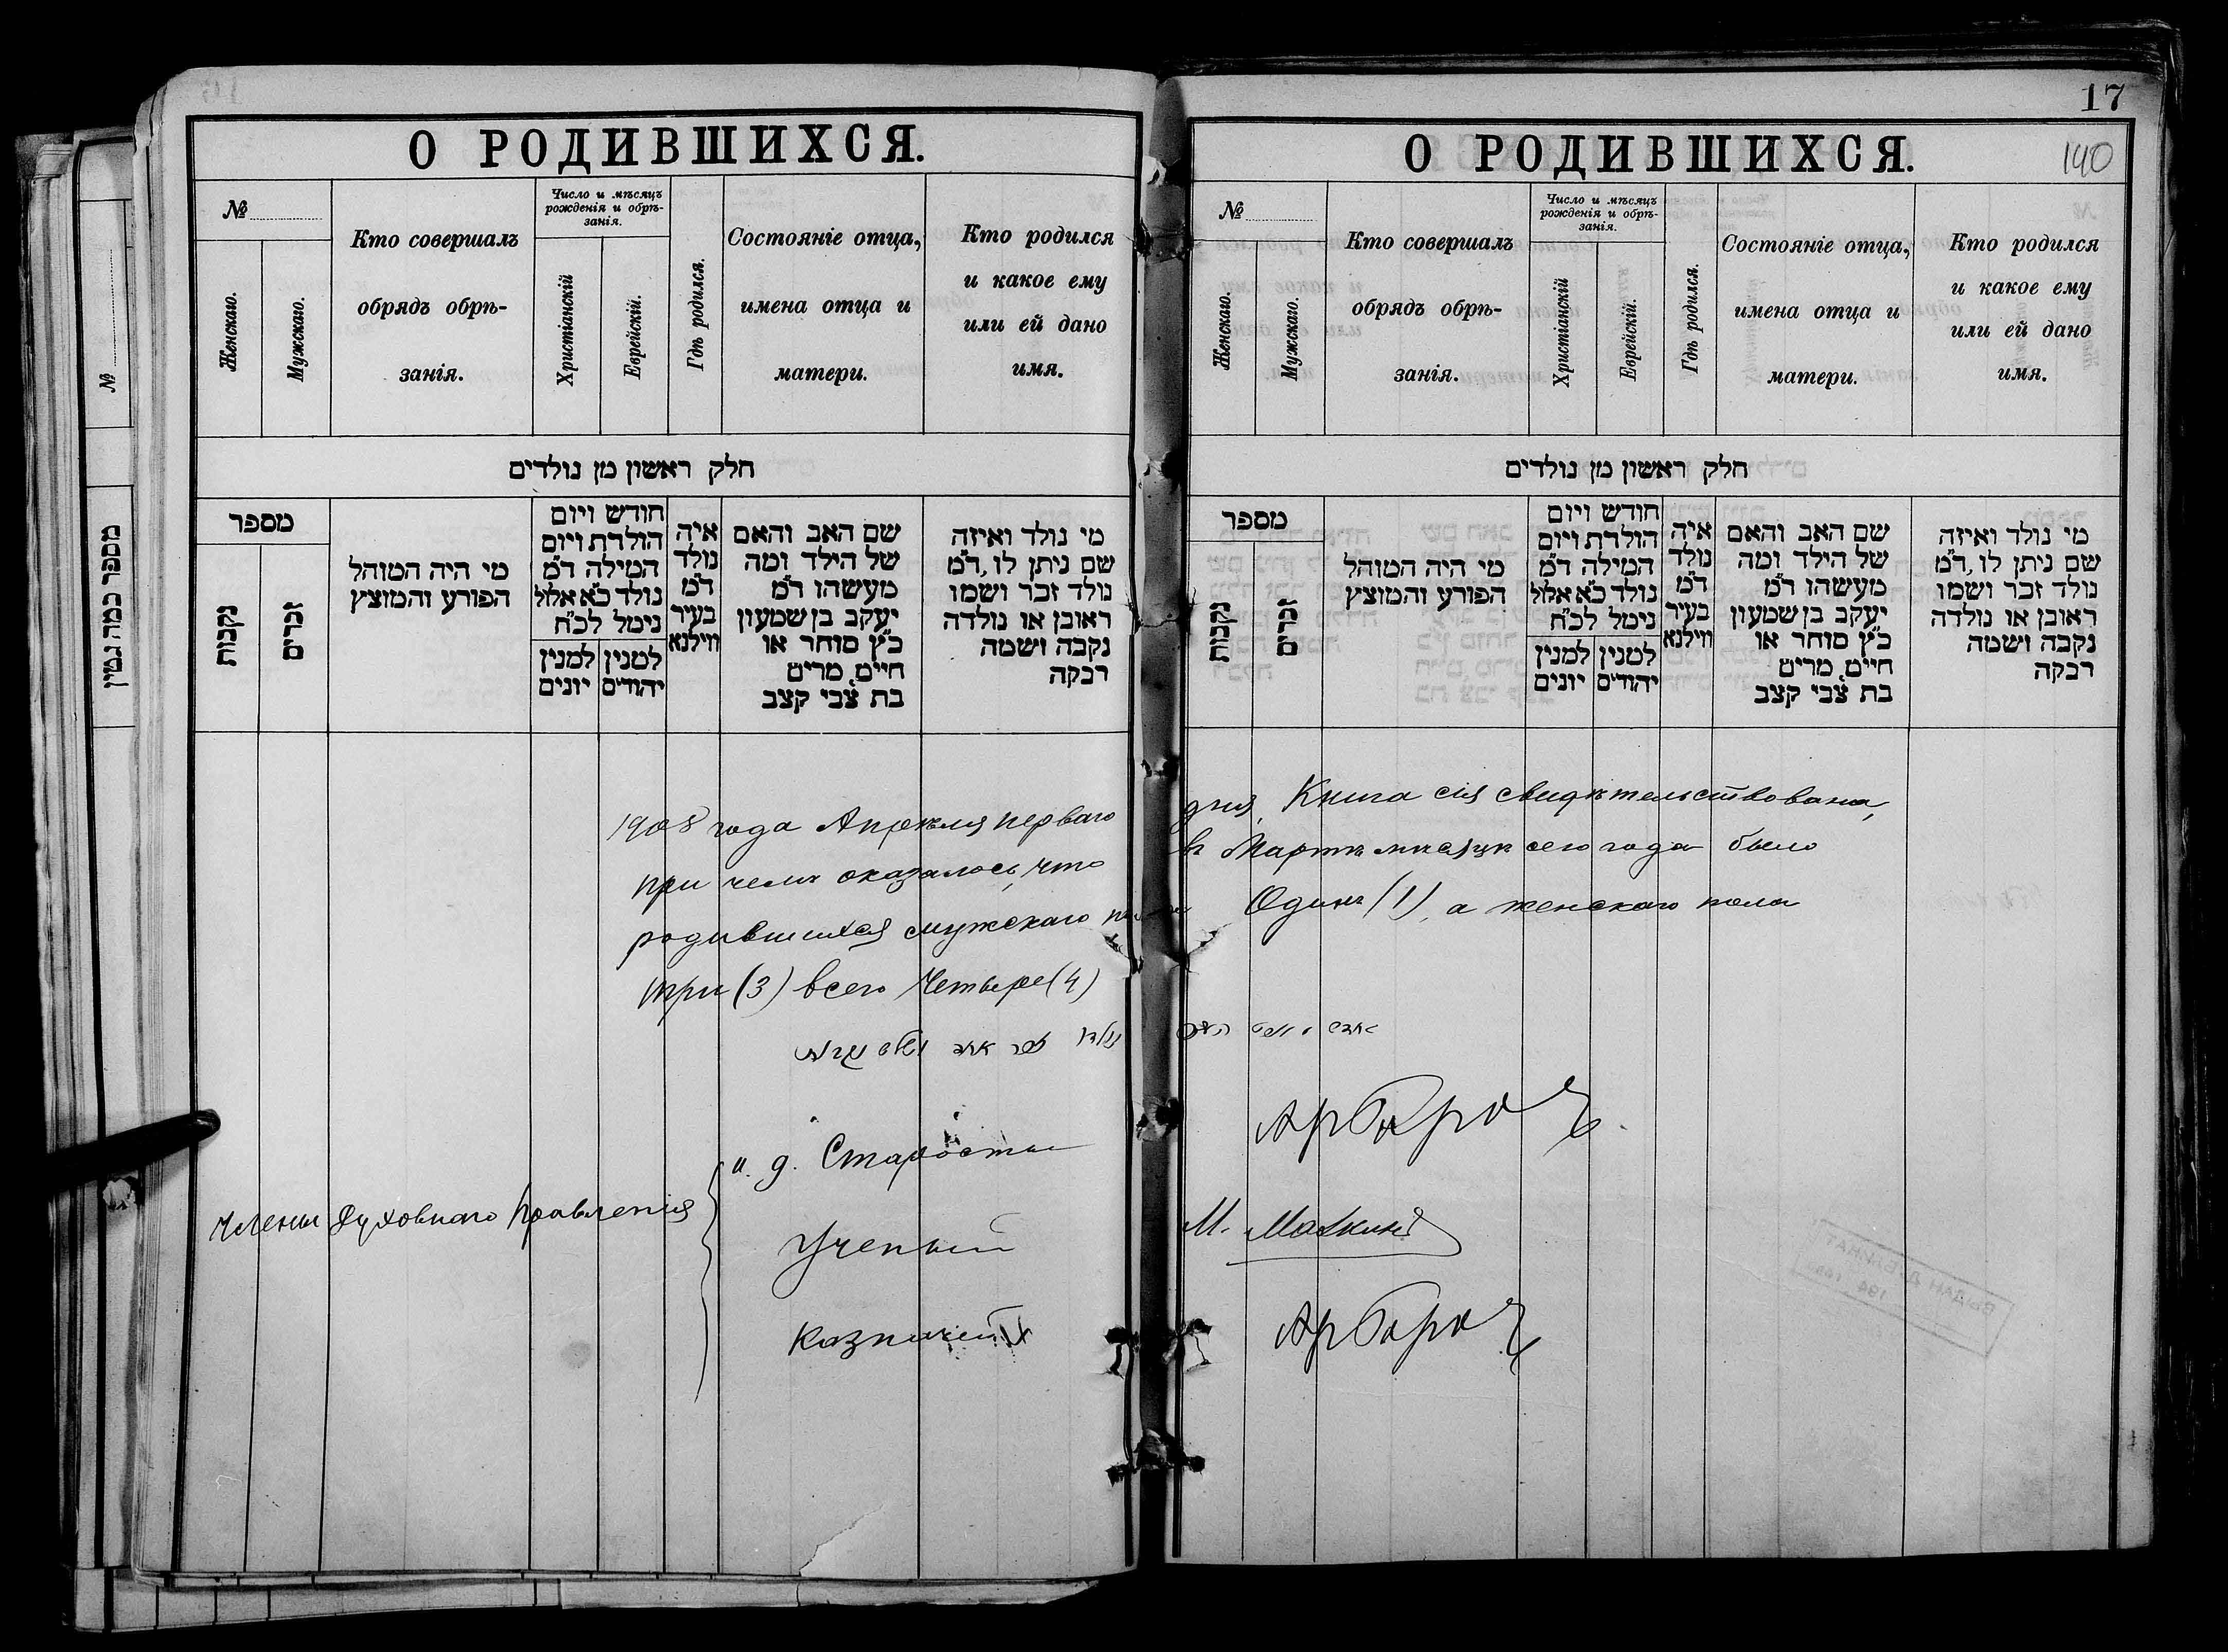 О РОДИВШИХСЯ.
№
Женскаго.
Мужскаго.
Кто совершалъ
обрядъ обрѣ-
занія.
Число и мѣсяцъ
рожденія и обрѣ-
занія.
Христіанскій
Еврейскій.
Гдѣ родился.
Состояніе отца,
имена отца и
матери.
Кто родился
и какое ему
или ей дано
имя.
חלק ראשון מן נולדים
מספר
נקבות
זכרים
מי היה המוהל
הפורע והמוצץ
חודש ויום
הולדת ויום
המילה ד״מ
נולד כ״א אלול
נימל לכ״ח
למנין יהודים
למנין יונים
איה
נולד
ד״מ
בעיר
ווילנא
שם האב והאם
של הילד ומה
מעשהו ד״מ
יעקב בן שמעון
כ״ץ סוחר או
חיים, מרים
בת צבי קצב
מי נולד ואיזה
שם ניתן לו, ד״מ
נולד זכר ושמו
ראובן או נולדה
נקבה ושמה
רבקה
№
מספר כמה גמין
17
140
О РОДИВШИХСЯ.
№
Женскаго.
Мужскаго.
Кто совершалъ
обрядъ обрѣ-
занія.
Число и мѣсяцъ
рожденія и обрѣ-
занія.
Христіанскій
Еврейскій.
Гдѣ родился.
Состояніе отца,
имена отца и
матери.
Кто родился
и какое ему
или ей дано
имя.
חלק ראשון מן נולדים
מספר
נקבות
זכרים
מי היה המוהל
הפורע והמוצץ
חודש ויום
הולדת ויום
המילה ד״מ
נולד כ״א אלול
נימל לכ״ח
למנין יהודים
למנין יונים
איה
נולד
ד״מ
בעיר
ווילנא
שם האב והאם
של הילד ומה
מעשהו ד״מ
יעקב בן שמעון
כ״ץ סוחר או
חיים, מרים
בת צבי קצב
מי נולד ואיזה
שם ניתן לו, ד״מ
נולד זכר ושמו
ראובן או נולדה
נקבה ושמה
רבקה
1908 года Апрѣля перваго дня, Книга сія свидѣтельствована,
при чемъ оказалось, что въ Мартѣ мѣсяцѣ сего года было
родившихся мужскаго пола Одинъ (1), а женскаго пола
три (3) всего Четыре (4)
Члены Духовнаго Правленія
и. д. Старосты
Ученый М.
Казначей